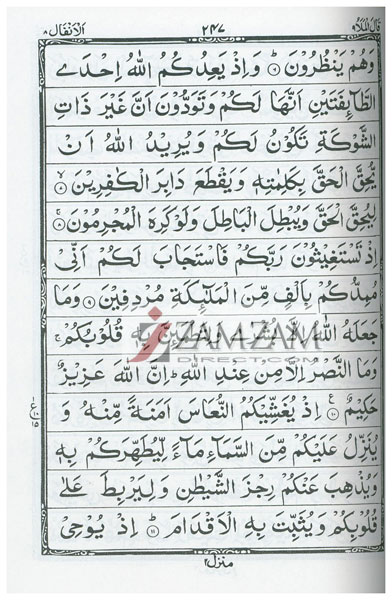 قال الملأ ٩
٢٤٧
الانفال ٨
وَهُمْ يَنْظُرُوْنَ ۞ وَاِذْ يَعِدُكُمُ اللّٰهُ اِحْدَے
الطَّآئِفَتَيْنِ اَنَّهَا لَكُمْ وَتَوَدُّوْنَ اَنَّ غَيْرَ ذَاتِ
الشَّوْكَةِ تَكُوْنُ لَكُمْ وَيُرِيْدُ اللّٰهُ اَنْ
يُّحِقَّ الْحَقَّ بِكَلِمٰتِهٖ وَيَقْطَعَ دَابِرَ الْكٰفِرِيْنَ ۙ
لِيُحِقَّ الْحَقَّ وَيُبْطِلَ الْبَاطِلَ وَلَوْكَرِهَ الْمُجْرِمُوْنَ ۚ
اِذْ تَسْتَغِيْثُوْنَ رَبَّكُمْ فَاسْتَجَابَ لَكُمْ اَنِّىْ
مُمِدُّكُمْ بِاَلْفٍ مِّنَ الْمَلٰٓئِكَةِ مُرْدِفِيْنَ ٩ وَمَا
جَعَلَهُ اللّٰهُ اِلَّا بُشْرٰى وَلِتَطْمَئِنَّ بِهٖ قُلُوْبُكُمْ ۚ
وَمَا النَّصْرُ اِلَّا مِنْ عِنْدِ اللّٰهِ ؕ اِنَّ اللّٰهَ عَزِيْزٌ
حَكِيْمٌ ١٠ اِذْ يُغَشِّيْكُمُ النُّعَاسَ اَمَنَةً مِّنْهُ وَ
يُنَزِّلُ عَلَيْكُمْ مِّنَ السَّمَآءِ مَآءً لِّيُطَهِّرَكُمْ بِهٖ
وَيُذْهِبَ عَنْكُمْ رِجْزَ الشَّيْطٰنِ وَلِيَرْبِطَ عَلٰے
قُلُوْبِكُمْ وَيُثَبِّتَ بِهِ الْاَقْدَامَ ١١ اِذْ يُوْحِىْ
منزل ٢
iZAMZAM
DIRECT.COM